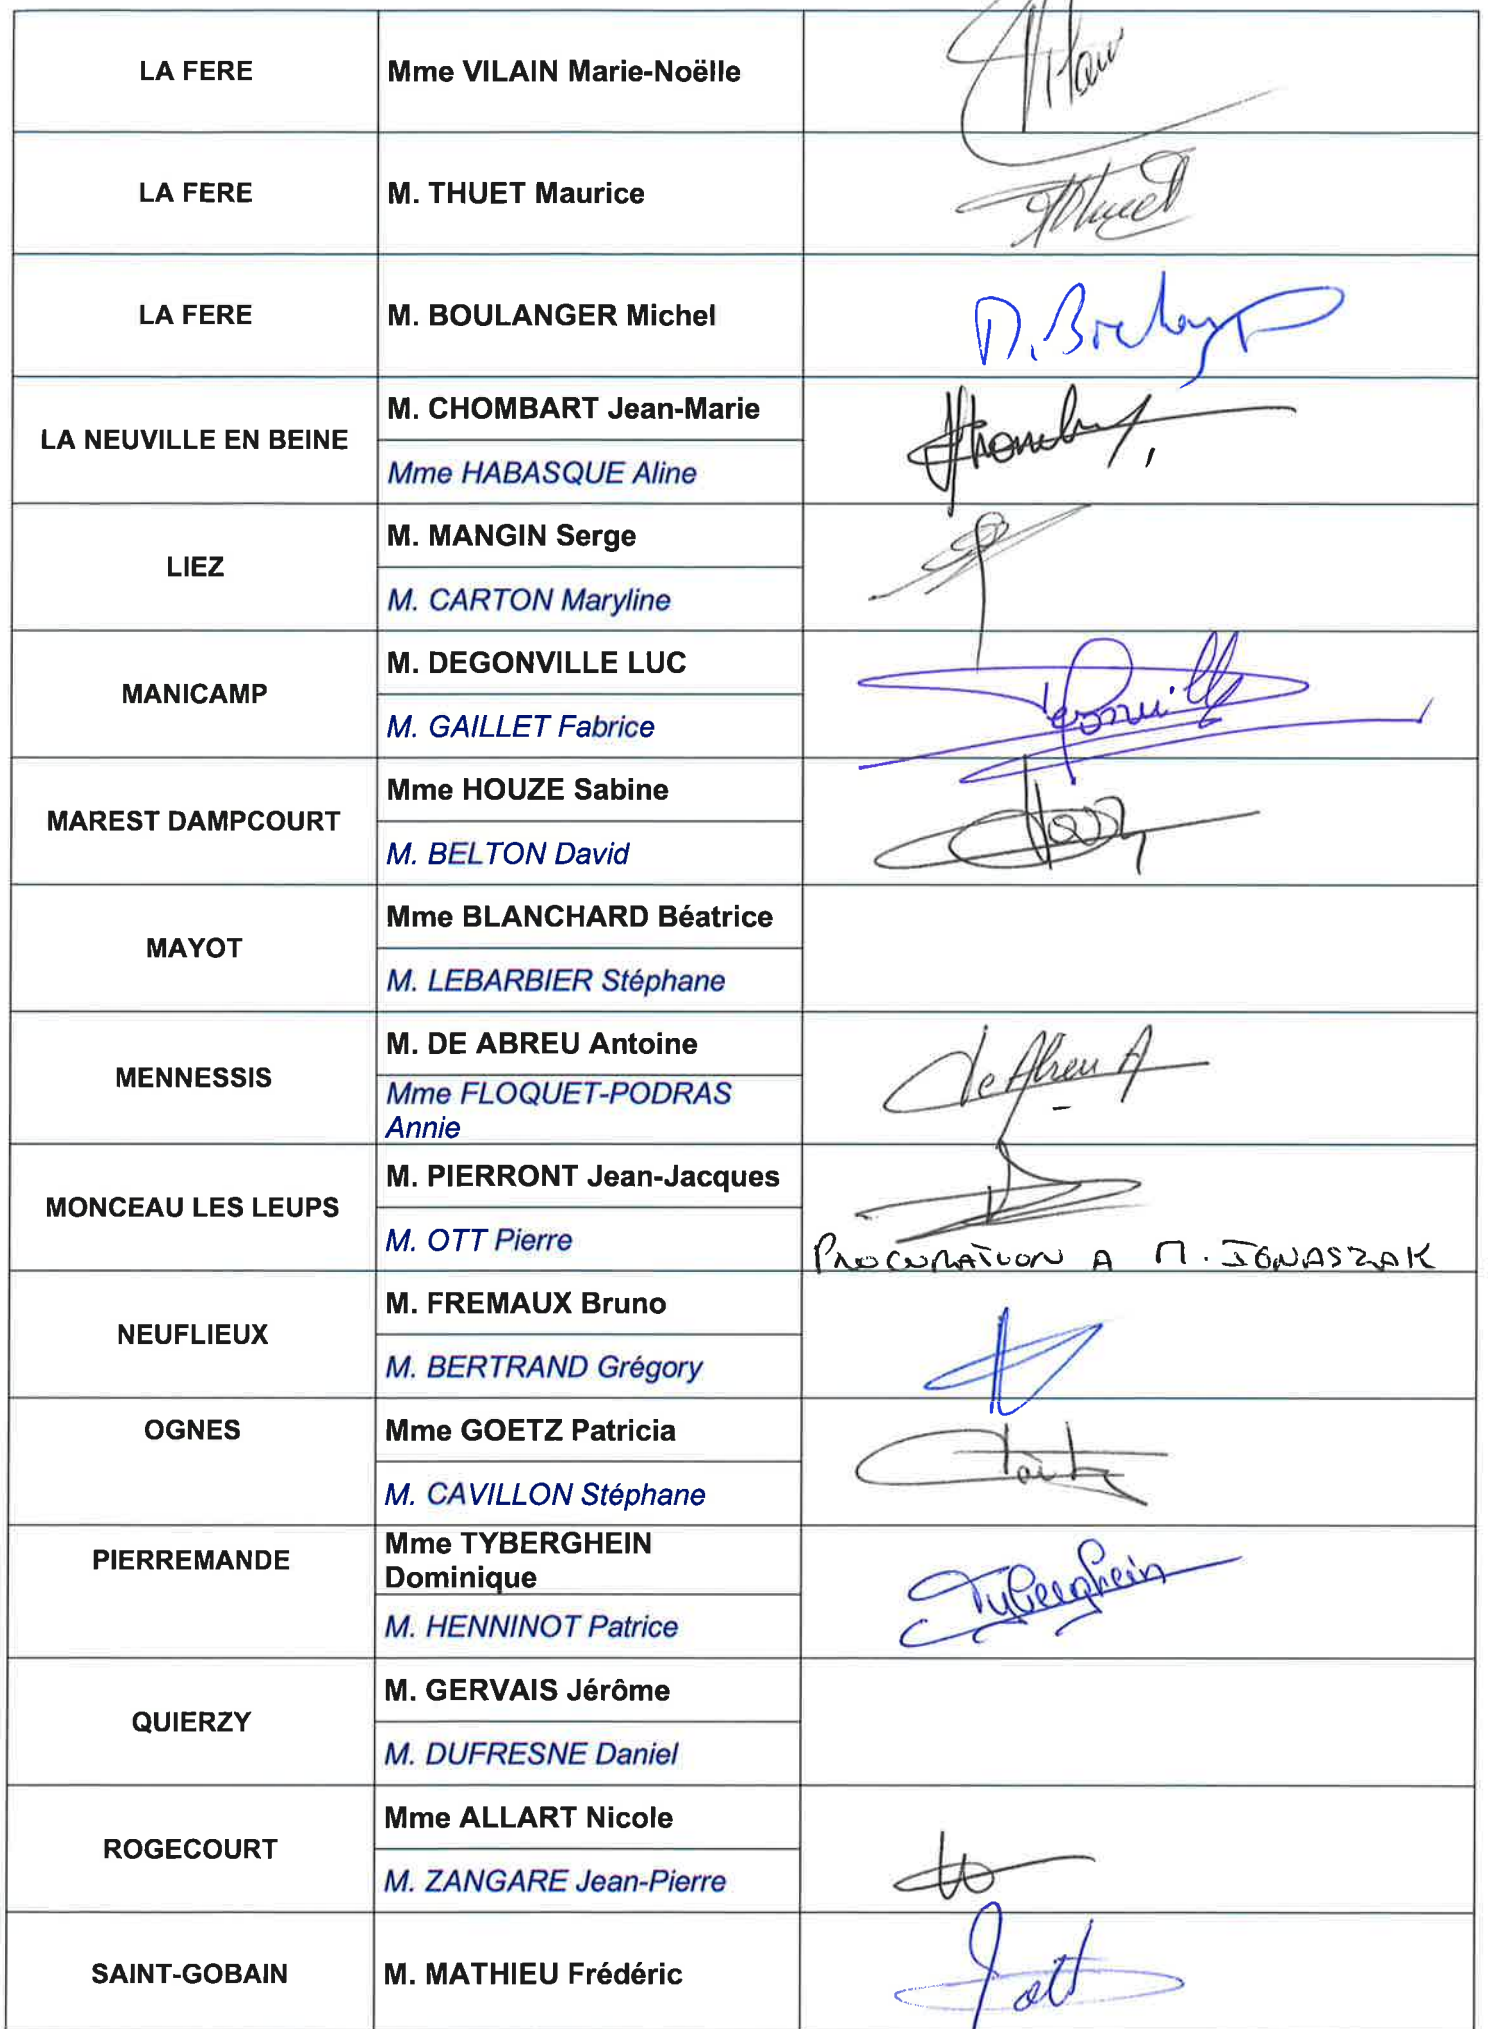 LA FERE
Mme VILAIN Marie-Noëlle
LA FERE
M. THUET Maurice
LA FERE
M. BOULANGER Michel
LA NEUVILLE EN BEINE
M. CHOMBART Jean-Marie
Mme HABASQUE Aline
LIEZ
M. MANGIN Serge
M. CARTON Maryline
MANICAMP
M. DEGONVILLE LUC
M. GAILLET Fabrice
MAREST DAMPCOURT
Mme HOUZE Sabine
M. BELTON David
MAYOT
Mme BLANCHARD Béatrice
M. LEBARBIER Stéphane
MENNESSIS
M. DE ABREU Antoine
De Abreu A
Mme FLOQUET-PODRAS
Annie
MONCEAU LES LEUPS
M. PIERRONT Jean-Jacques
M. OTT Pierre
PROCURATION A M. IGNASZAK
NEUFLIEUX
M. FREMAUX Bruno
M. BERTRAND Grégory
OGNES
Mme GOETZ Patricia
M. CAVILLON Stéphane
PIERREMANDE
Mme TYBERGHEIN
Dominique
Tyberghein
M. HENNINOT Patrice
QUIERZY
M. GERVAIS Jérôme
M. DUFRESNE Daniel
ROGECOURT
Mme ALLART Nicole
M. ZANGARE Jean-Pierre
SAINT-GOBAIN
M. MATHIEU Frédéric